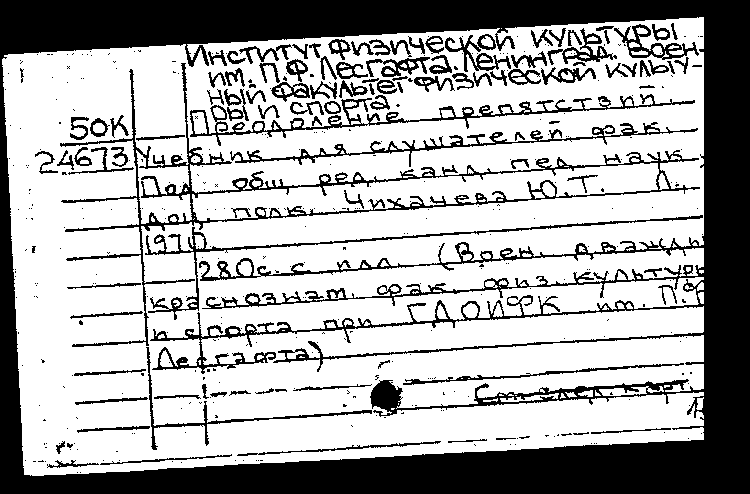 Институт физической культуры
им. П.Ф. Лесгафта. Ленинград. Воен-
ный факультет физической культу-
ры и спорта.
50К Преодоление препятствий.
24673 Учебник для слушателей фак.
Под общ. ред. канд. пед. наук,
доц. полк. Чихачева Ю.Т. Л.,
1970.
280с. с илл. (Воен. дважды
краснознам. фак. физ. культуры
и спорта при ГДОИФК им. П.Ф.
Лесгафта)
См. след. карт.